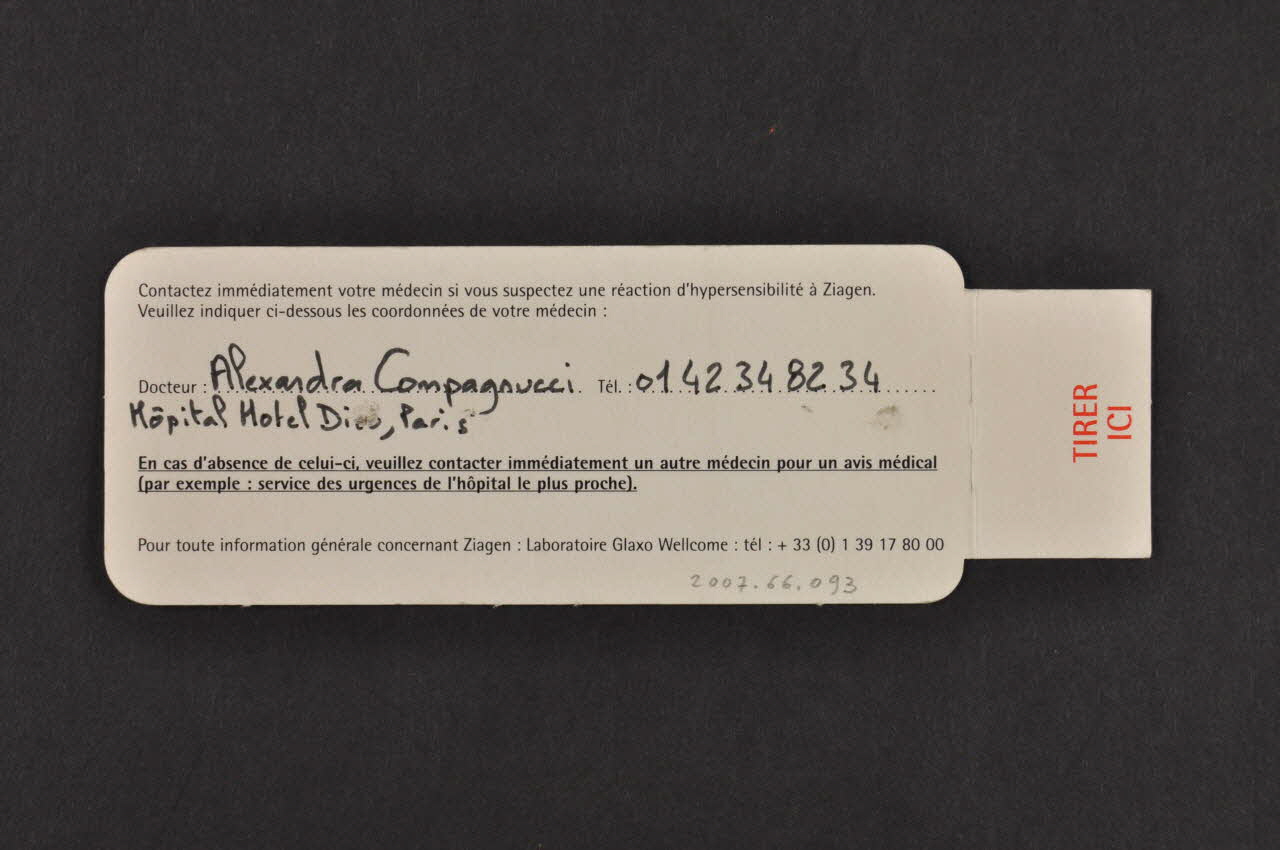 Contactez immédiatement votre médecin si vous suspectez une réaction d'hypersensibilité à Ziagen.
Veuillez indiquer ci-dessous les coordonnées de votre médecin :
Docteur : Alexandra Compagnucci Tél. : 01 42 34 82 34
Hôpital Hotel Dieu, Paris
En cas d'absence de celui-ci, veuillez contacter immédiatement un autre médecin pour un avis médical
(par exemple : service des urgences de l'hôpital le plus proche).
Pour toute information générale concernant Ziagen : Laboratoire Glaxo Wellcome : tél : + 33 (0) 1 39 17 80 00
2007.66.093
TIRER
ICI